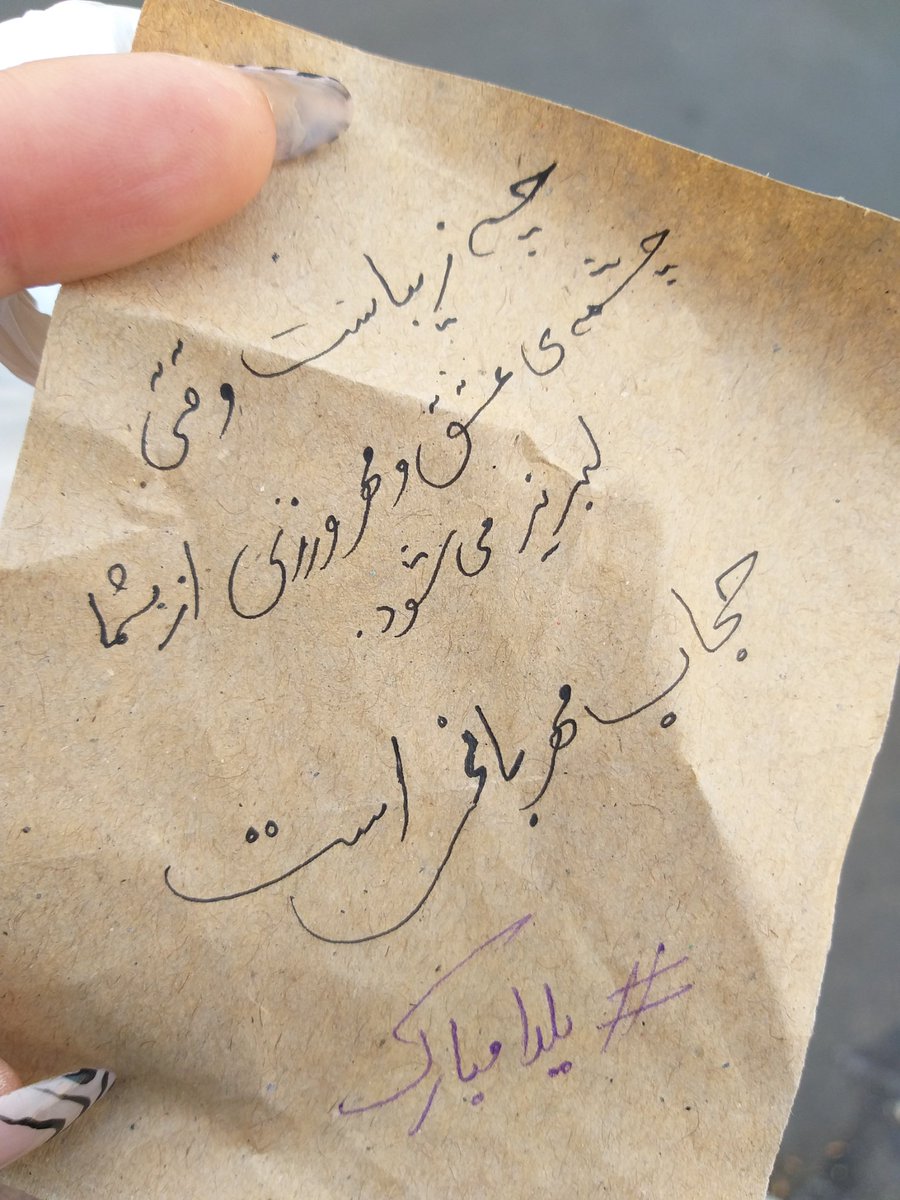 چه زیباست وقتی
چشمه‌ی عشق و مهرورزی از شما
لبریز می شود.
حجاب مهربانی است
#یلدا مبارک